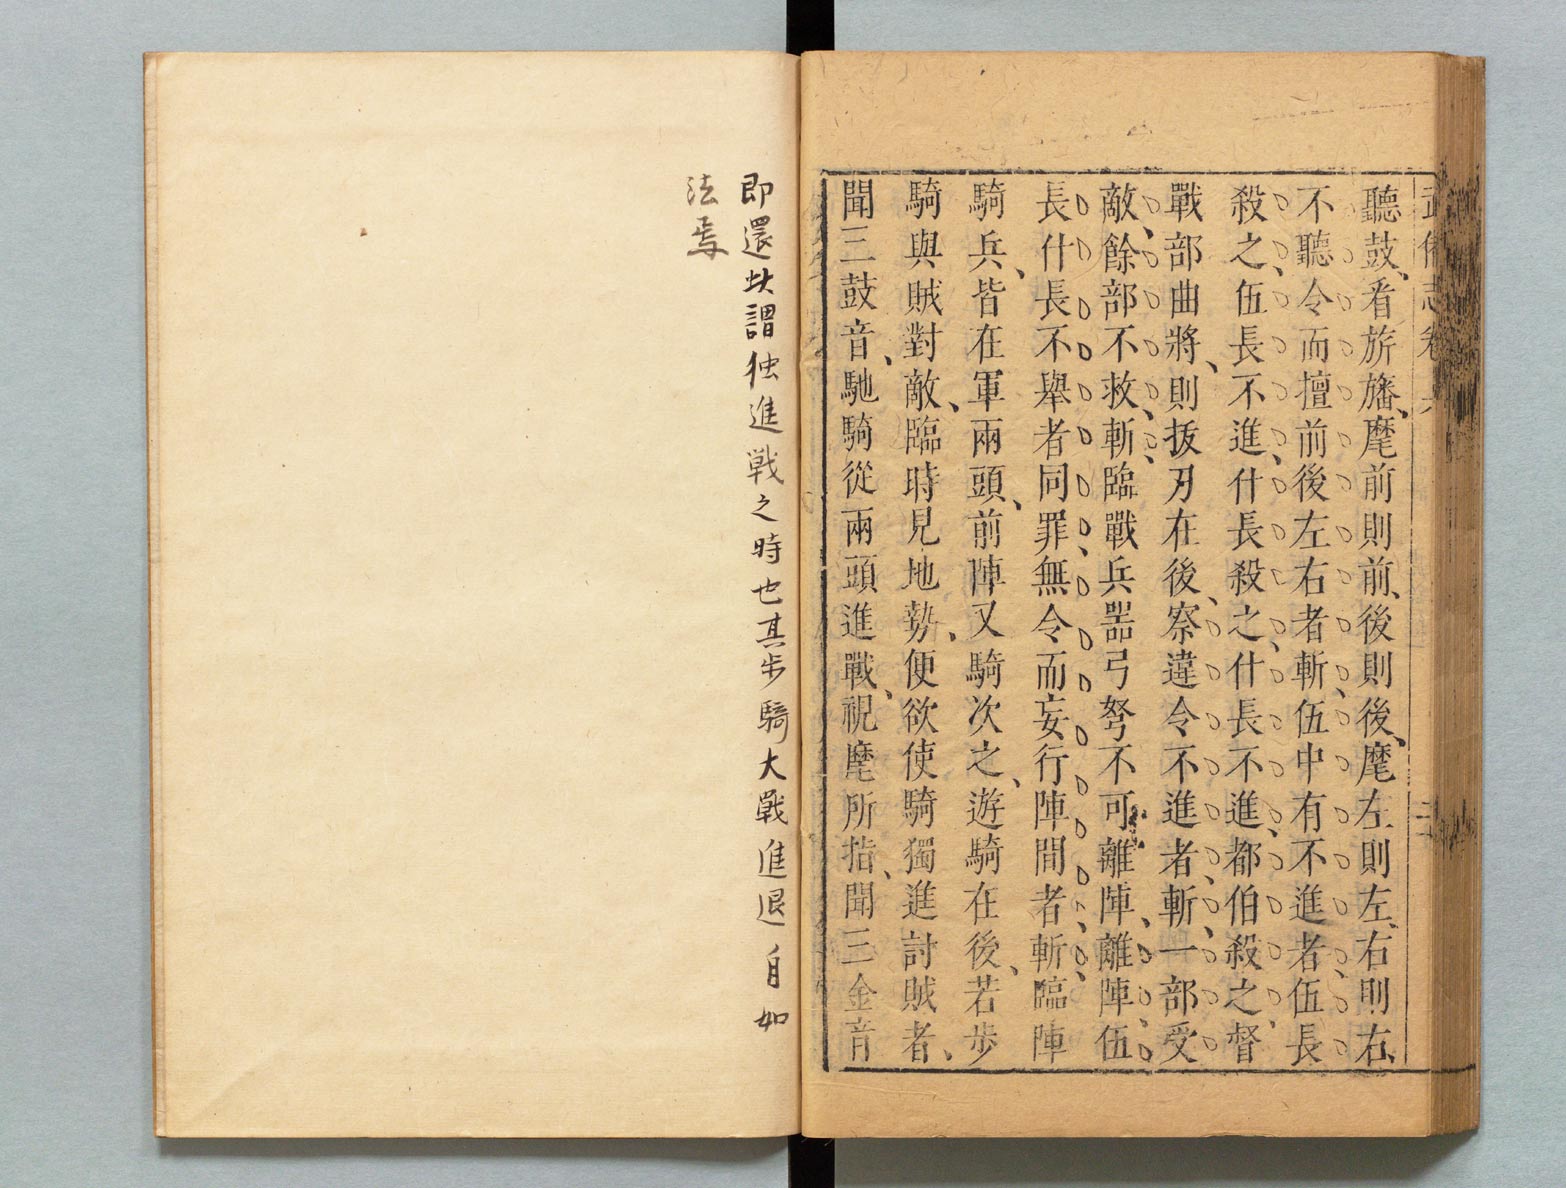 武備志卷六
二
聽鼓、看旂旛、麾前則前、後則後、麾左則左、右則右、
不聽令而擅前後左右者斬、伍中有不進者、伍長
殺之、伍長不進、什長殺之、什長不進、都伯殺之、督
戰部曲將、則拔刃在後、察違令不進者斬、一部受
敵、餘部不救、斬、臨戰兵噐弓弩不可離陣、離陣、伍
長什長不舉者同罪、無令而妄行陣間者斬、臨陣
騎兵、皆在軍兩頭、前陣又騎次之、遊騎在後、若步
騎與賊對敵、臨時見地勢、便欲使騎獨進討賊者、
聞三鼓音、馳騎從兩頭進戰、視麾所指、聞三金音
即還此謂独進戰之時也其步騎大戰進退自如
法焉